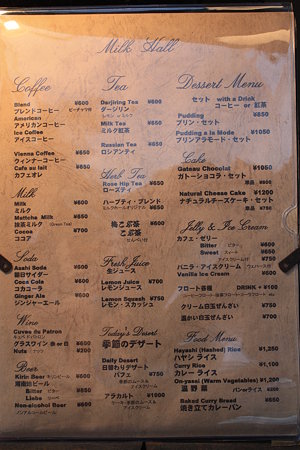 Milk Hall
Coffee
Blend ¥600
ブレンドコーヒー
American
アメリカンコーヒー
Ice Coffee
アイスコーヒー
Vienna Coffee ¥650
ウィンナーコーヒー
Cafe au lait ¥650
カフェオレ
Milk
Milk
ミルク
Mattcha Milk ¥650
抹茶ミルク (Green Tea)
Cocoa ¥700
ココア
Soda
Asahi Soda ¥600
朝日サイダー
Coca Cola ¥600
コカコーラ
Ginger Ale ¥600
ジンジャーエール
Wine
Cuvee du Patron
グラスワイン
Nuts
Beer
Kirin Beer キリンビール ¥600
湘南地ビール
Bitter
Liebe
Non-alcohol Beer ¥600
ノンアルコールビール
Tea
Darjiring Tea ¥600
ダージリン
Milk Tea ¥650
ミルク紅茶
Russian Tea ¥650
ロシアンティ
Herb Tea
Rose Hip Tea ¥650
ローズティ
ハーブティ・ブレンド
ミルクホールオリジナル ¥650
梅こぶ茶
こぶ茶
せんべい付
Fresh Juice
生ジュース
Lemon Juice ¥700
レモンジュース
Lemon Squash ¥750
レモン・スカッシュ
Today's Desert
季節のデザート
Daily Desert
日替わりデザート
パフェ ¥750
季節のムースと
アイスクリーム
アラカルト ¥1000
ケーキ・季節のムースと
アイスクリーム
Dessert Menu
セット with a Drink
コーヒー or 紅茶
Pudding ¥650
プリン・セット
Pudding a la Mode ¥1050
プリンアラモード・セット
Cake
Gateau Chocolat ¥1050
ガトーショコラ・セット
単品
Natural Cheese Cake ¥1200
ナチュラルチーズケーキ・セット
単品 ¥750
Jelly & Ice Cream
カフェ・ゼリー
Bitter ビター ¥600
Sweet アイスクリーム付
バニラ・アイスクリーム
Vanilla Ice Cream ¥600
フロート各種 DRINK + ¥100
クリーム白玉ぜんざい
濃い白玉ぜんざい ¥700
Food Menu
Hayashi (Hashed) Rice ¥1,250
ハヤシ ライス
Curry Rice ¥1,100
カレー ライス
On-yasai (Warm Vegetables) ¥1,200
温野菜
Baked Curry Bread ¥650
焼き立てカレーパン